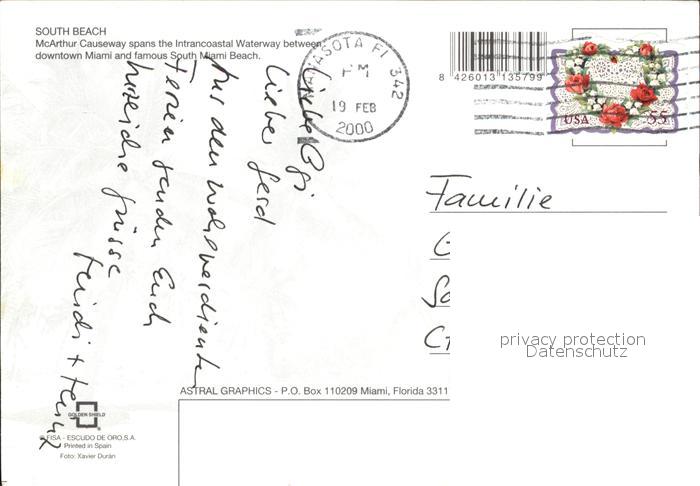 SOUTH BEACH
McArthur Causeway spans the Intrancoastal Waterway between
downtown Miami and famous South Miami Beach.
MANASOTA FL 342
PM
19 FEB
2000
8 426013 135799
USA 55
Liebe Gigi
Lieber Gerd
Aus den wohlverdienten
Ferien senden Euch
herzliche Grüsse
Heidi + Heinz
Familie
G
So
privacy protection
Datenschutz
ASTRAL GRAPHICS - P.O. Box 110209 Miami, Florida 3311
GOLDEN SHIELD
© FISA - ESCUDO DE ORO, S.A.
Printed in Spain
Foto: Xavier Durán